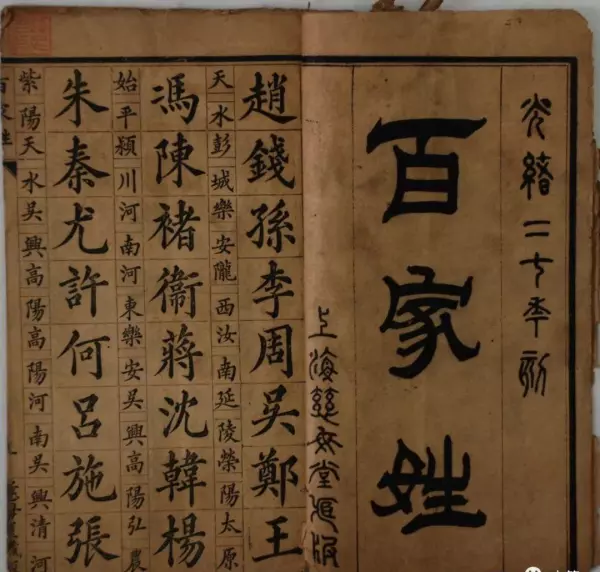 光緒二十年刻
百家姓
上海慈母堂版
趙錢孫李周吳鄭王
天水彭城樂安隴西汝南延陵榮陽太原
馮陳褚衞蔣沈韓楊
始平潁川河南河東樂安吳興高陽弘農
朱秦尤許何呂施張
紫陽天水吳興高陽高陽河南吳興清河
百家姓